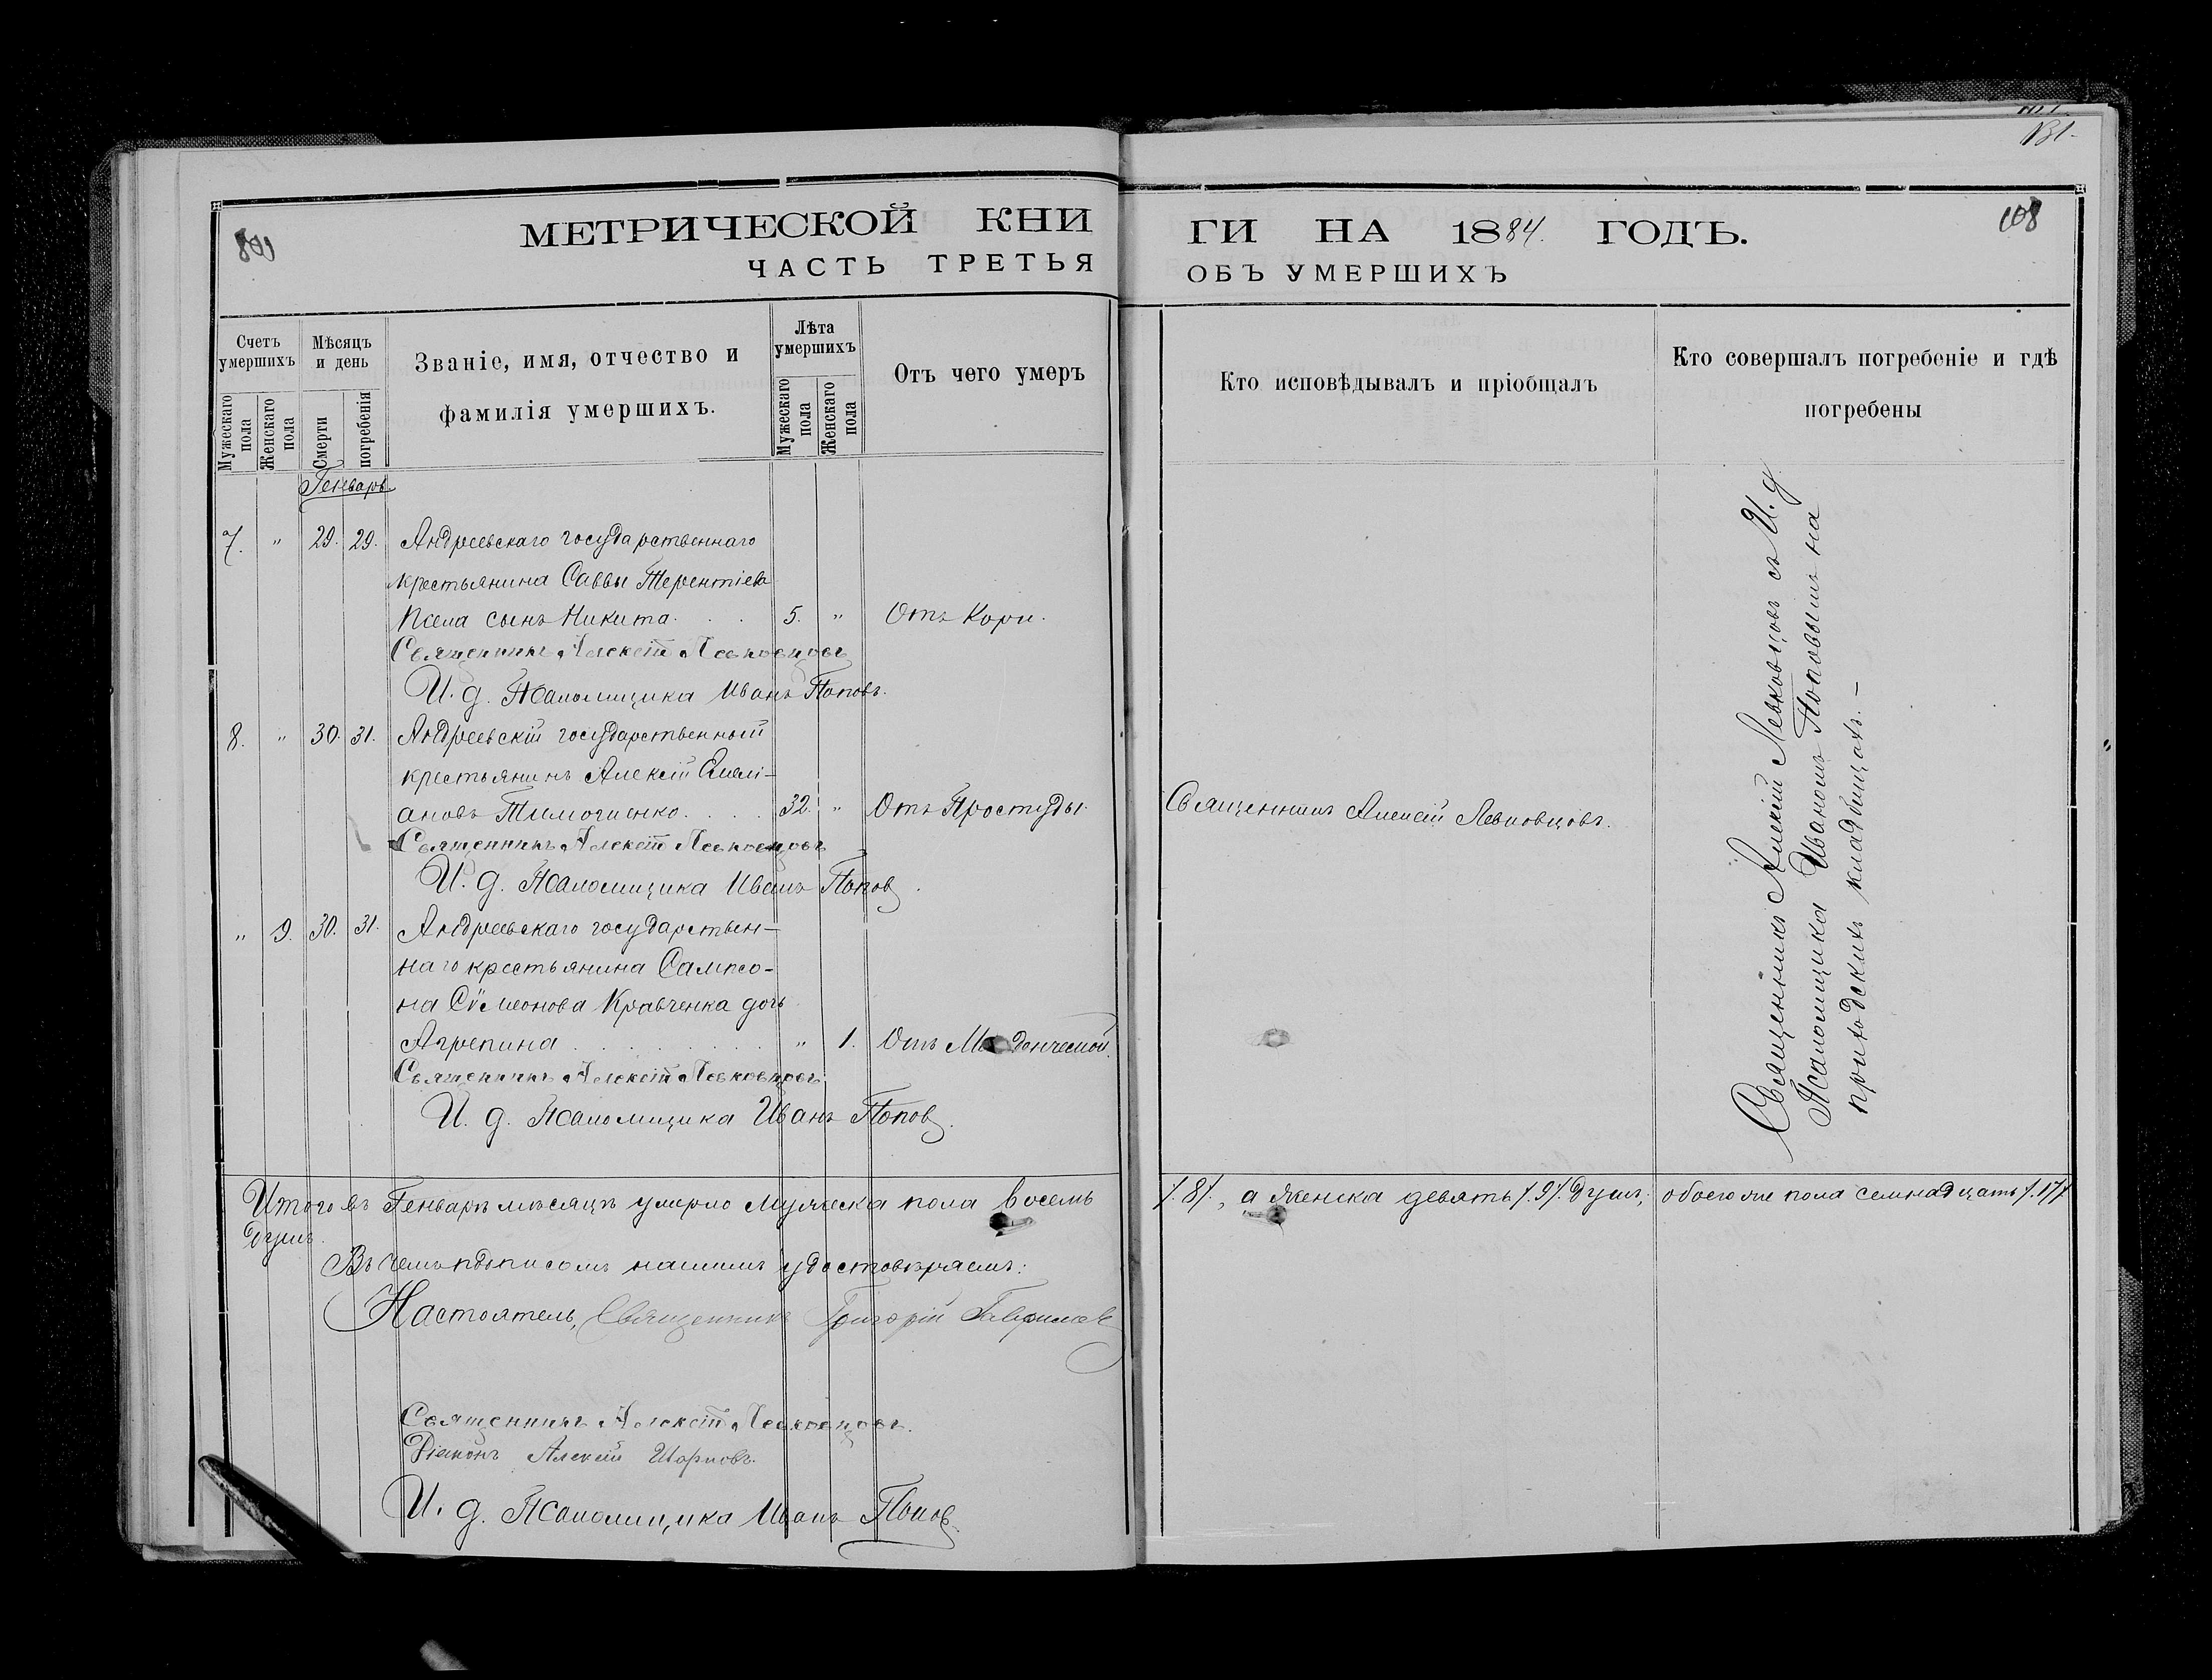 131.
108
108
МЕТРИЧЕСКОЙ КНИ
ГИ НА 1884. ГОДЪ.
ЧАСТЬ ТРЕТЬЯ
ОБЪ УМЕРШИХЪ
Счетъ умершихъ
Мужескаго пола
Женскаго пола
Мѣсяцъ и день
Смерти
погребенія
Званіе, имя, отчество и
фамилія умершихъ.
Лѣта умершихъ
Мужескаго пола
Женскаго пола
Отъ чего умеръ
Кто исповѣдывалъ и пріобщалъ
Кто совершалъ погребеніе и гдѣ
погребены
Генварь
7. " 29. 29. Андреевскаго государственнаго
крестьянина Саввы Терентіева
Псела сынъ Никита. . . 5. " Отъ Кори.
Священникъ Алексій Левковцовъ
И. д. Псаломщика Иванъ Поповъ.
8. " 30. 31. Андреевскій государственный
крестьянинъ Алексій Емелі-
ановъ Тимошенко. . . . 32. " Отъ Простуды. Священникъ Алексій Левковцовъ.
Священникъ Алексій Левковцовъ
И. д. Псаломщика Иванъ Попов
" 9. 30. 31. Андреевскаго государствен-
наго крестьянина Сампсо-
на Сѵмеонова Кравченка дочь
Агрепина . . . . . . . . " 1. Отъ Младенческой.
Священникъ Алексій Левковцовъ
И. д. Псаломщика Иванъ Попов.
Священникъ Алексій Левковцовъ съ И. д.
Псаломщика Иваномъ Поповымъ на
приходскихъ кладбищахъ. –
Итого въ Генварѣ мѣсяцѣ умерло Мужеска пола восемь /.8/., а женска девять /.9/. душъ; обоего же пола семнадцать /.17/.
душъ.
Въ чемъ подписомъ нашимъ удостовѣряемъ:
Настоятель, Священникъ Григорій Гаврилов
Священникъ Алексій Левковцовъ.
Діаконъ Алексій
И. д. Псаломщика Иванъ Попов.